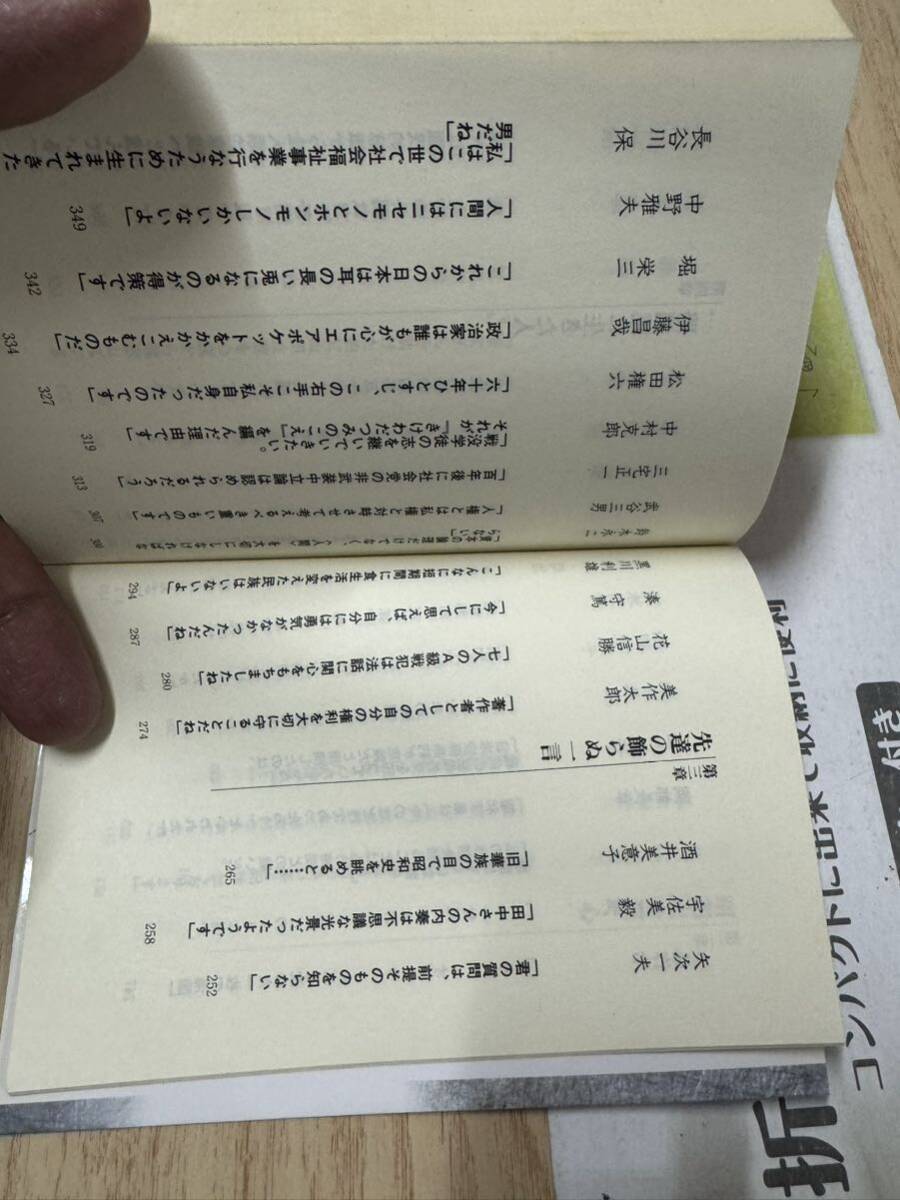 矢次一夫
「君の質問は、前提そのものを知らない」 252
宇佐美毅
「田中さんの内奏は不思議な光景だったようです」 258
酒井美意子
「旧華族の目で昭和史を眺めると……」 265
第三章
先達の飾らぬ一言
美作太郎
「著作者としての自分の権利を大切に守ることだね」 274
花山信勝
「七人のA級戦犯は法話に関心をもちましたね」 280
湊守篤
「今にして思えば、自分には勇気がなかったんだね」 287
黒川利雄
「こんなに短期間に食生活を変えた民族はいないよ」 294
鈴木永二
「資本の論理だけでなく、〈人間〉を大切にしなければな
らない」 300
武谷三男
「人権とは私権と対峙させて考えるべき重いものです」 307
三宅正一
「百年後に社会党の非武装中立論は認められるだろう」 313
中村克郎
「戦没学徒の志を継いでいきたい。
それが『きけわだつみのこえ』を編んだ理由です」 319
松田権六
「六十年ひとすじ、この右手こそ私自身だったのです」 327
伊藤昌哉
「政治家は誰もが心にエアポケットをかかえこむものだ」 334
堀栄三
「これからの日本は耳の長い兎になるのが得策です」 342
中野雅夫
「人間にはニセモノとホンモノしかいないよ」 349
長谷川保
「私はこの世で社会福祉事業を行なうために生まれてきた
男だね」
コンパクトに出来て収納に便利
付き
折